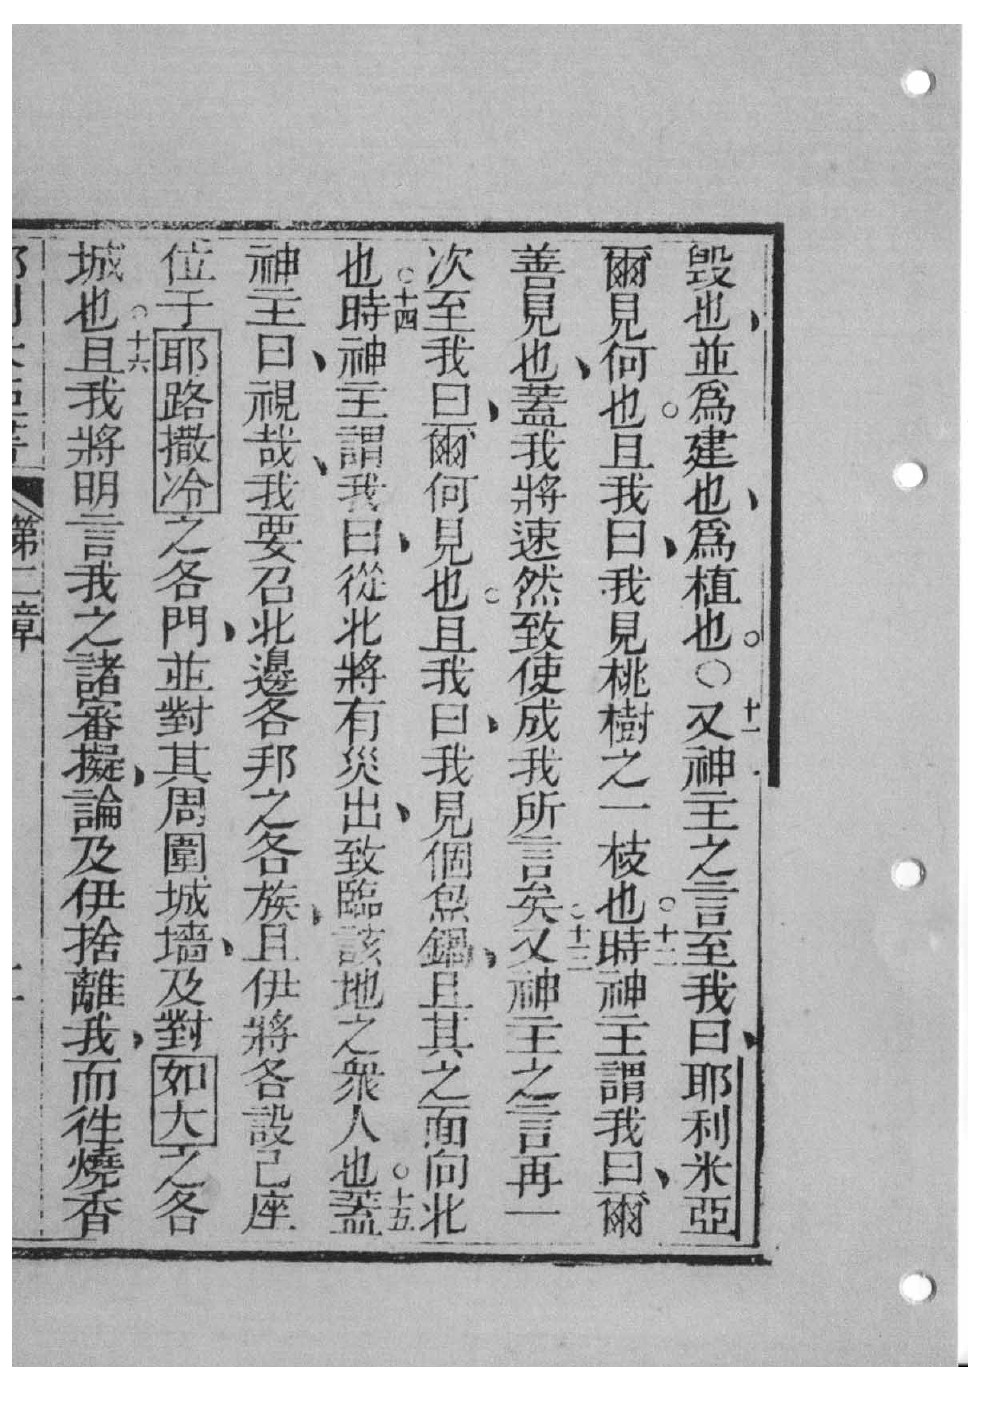 毀也、並為建也、為植也。○十一又神主之言至我曰、耶利米亞
爾見何也。且我曰、我見桃樹之一枝也。十二時神主謂我曰、爾
善見也、蓋我將速然致使成我所言矣。十三又神主之言再一
次至我曰、爾何見也。且我曰、我見個𩵋鍋、且其之面向北
也。十四時神主謂我曰、從北將有災出、致臨該地之衆人也。十五蓋
神主曰、視哉、我要召北邊各邦之各族、且伊將各設己座
位于耶路撒冷之各門、並對其周圍城墻、及對如大之各
城也。十六且我將明言我之諸審擬、論及伊捨離我、而徃燒香
第一章